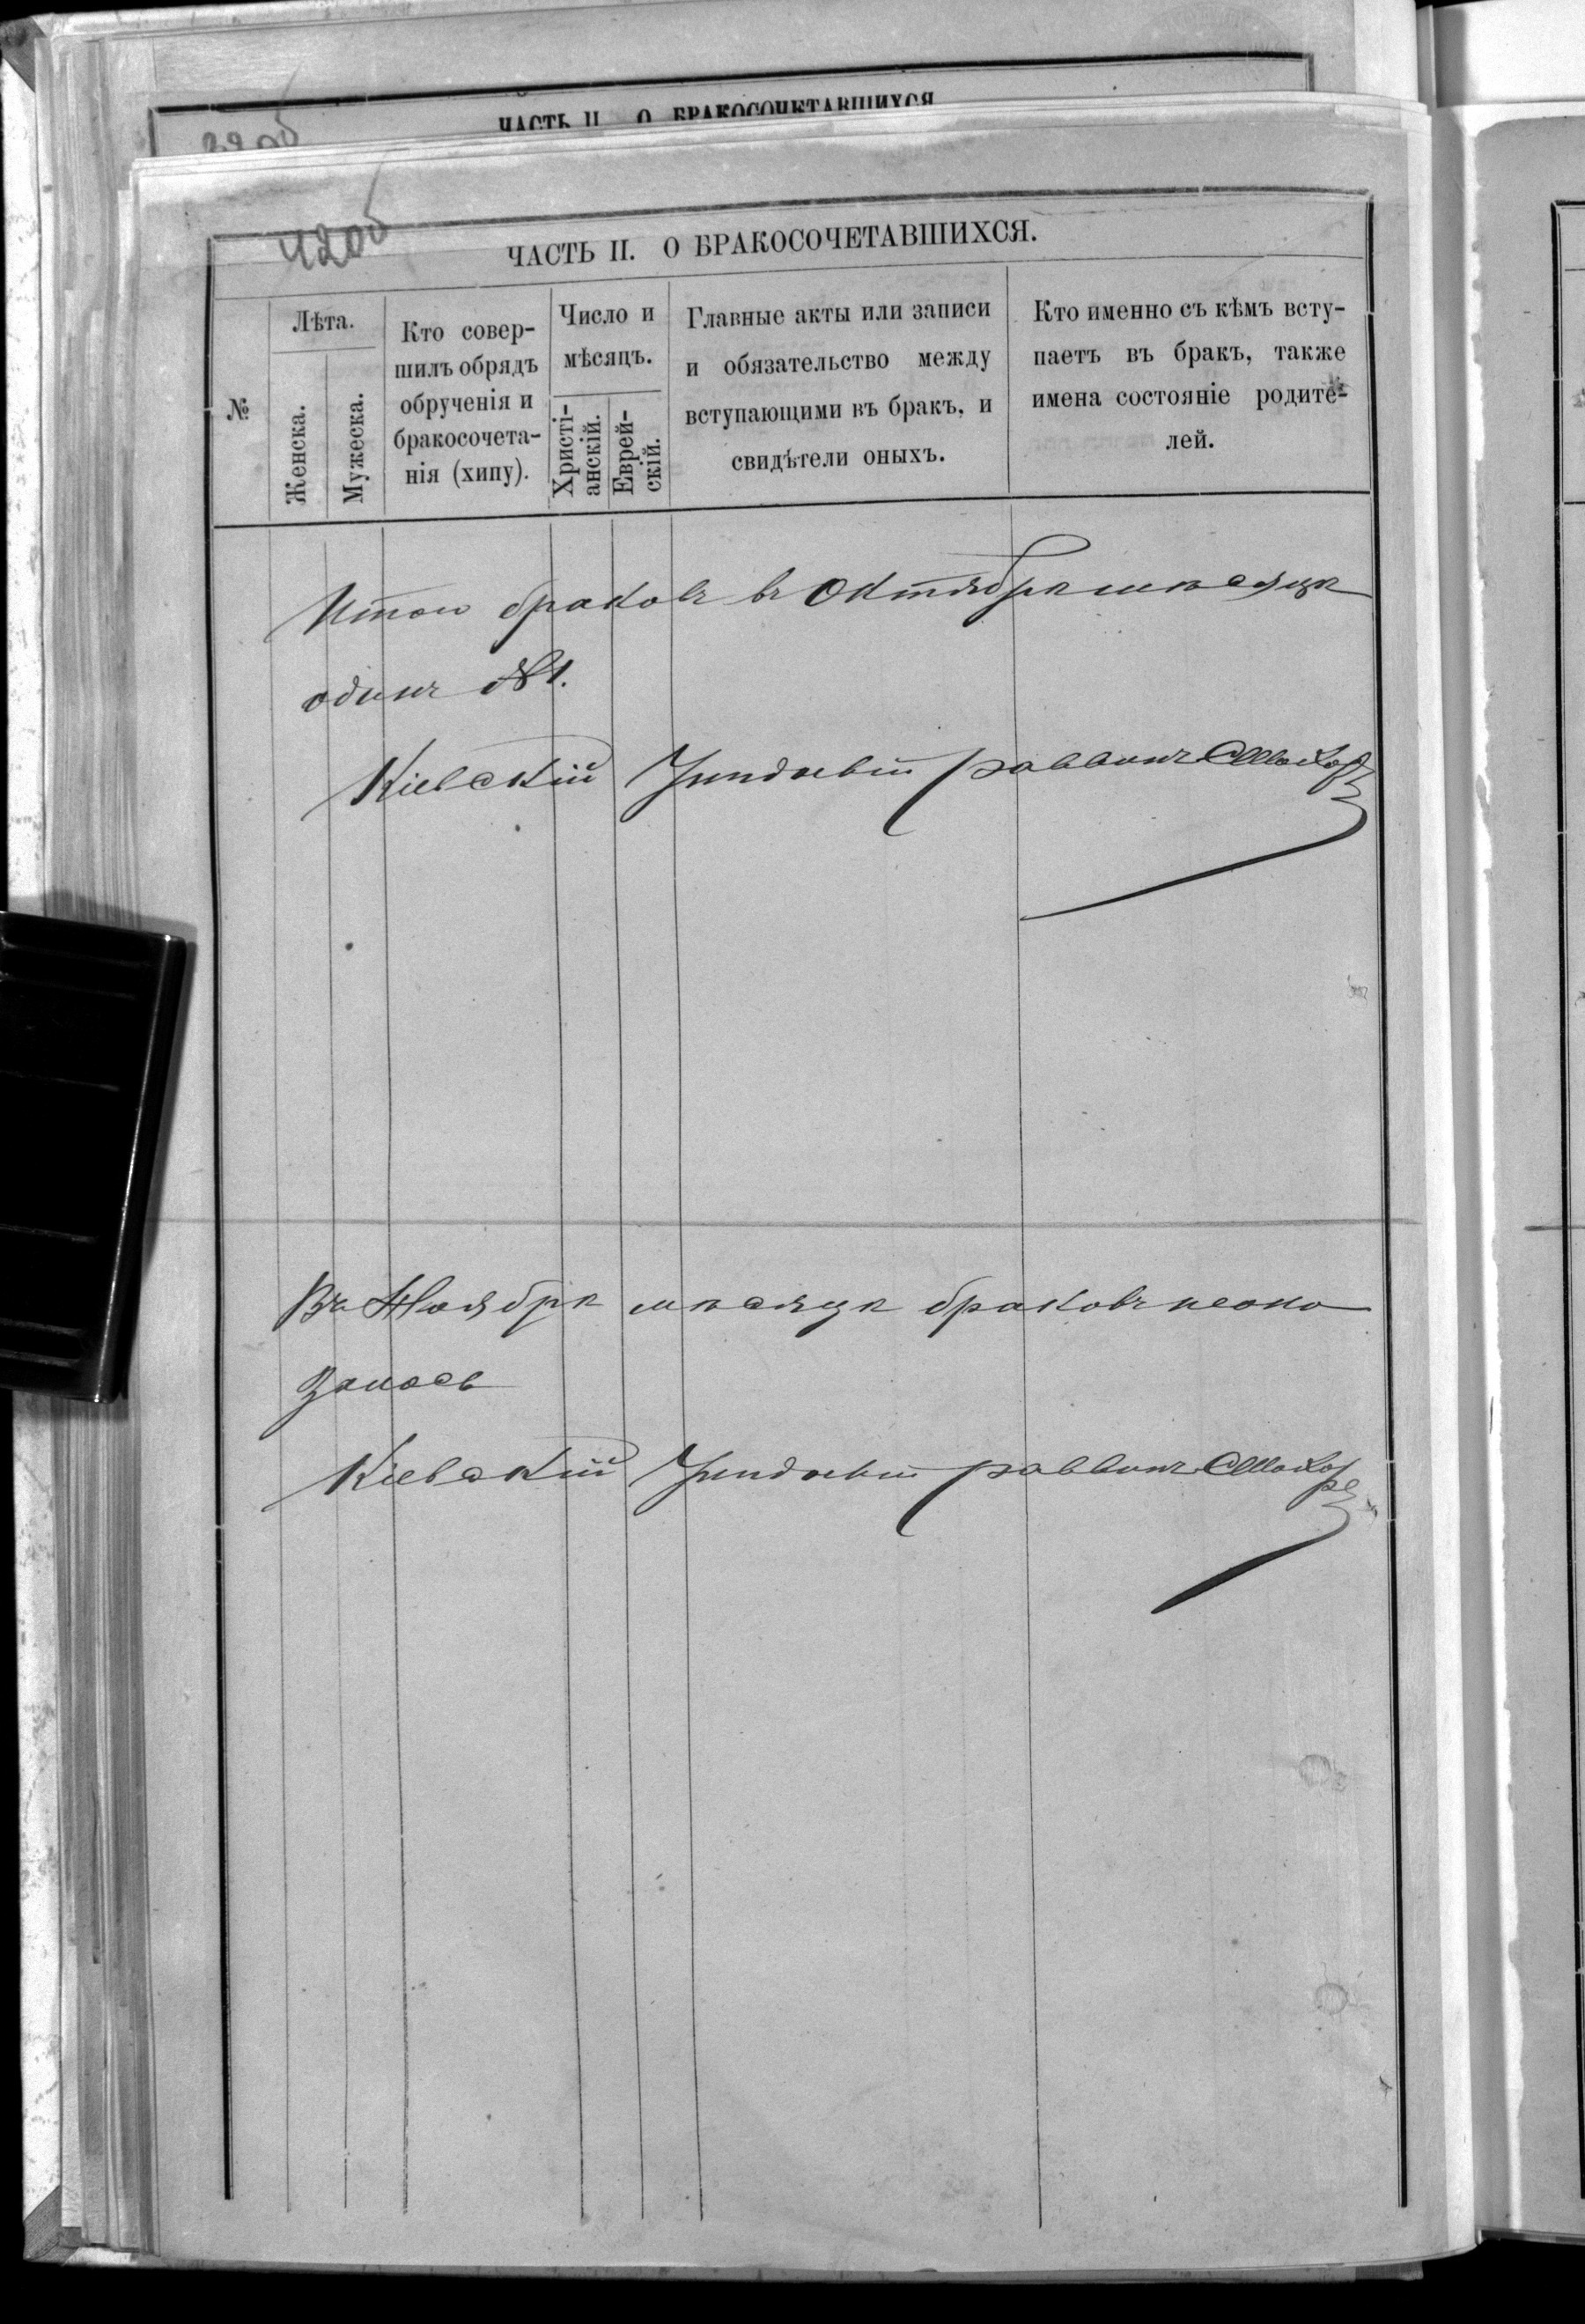 ЧАСТЬ II. О БРАКОСОЧЕТАВШИХСЯ
39об
42об
ЧАСТЬ II. О БРАКОСОЧЕТАВШИХСЯ.
№
Лѣта.
Женска.
Мужеска.
Кто совер-
шилъ обрядъ
обрученія и
бракосочета-
нія (хипу).
Число и
мѣсяцъ.
Христі-
анскій.
Еврей-
скій.
Главные акты или записи
и обязательство между
вступающими въ бракъ, и
свидѣтели оныхъ.
Кто именно съ кѣмъ всту-
паетъ въ бракъ, также
имена состояніе родите-
лей.
Итого браковъ въ Октябрѣ мѣсяцѣ
одинъ №1.
Кіевскій Уѣздный раввинъ
Въ Ноябрѣ мѣсяцѣ браковъ неока
залось
Кіевскій Уѣздный раввинъ